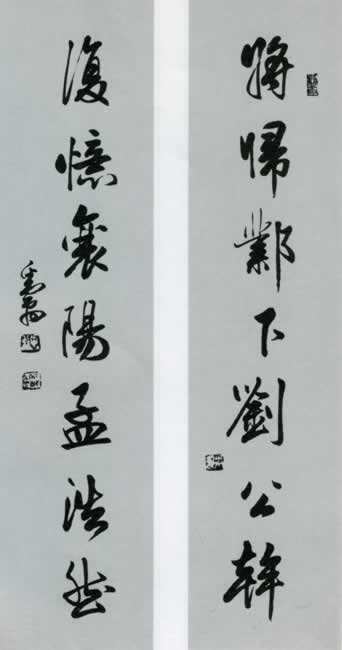 將歸鄴下劉公幹
復憶襄陽孟浩然